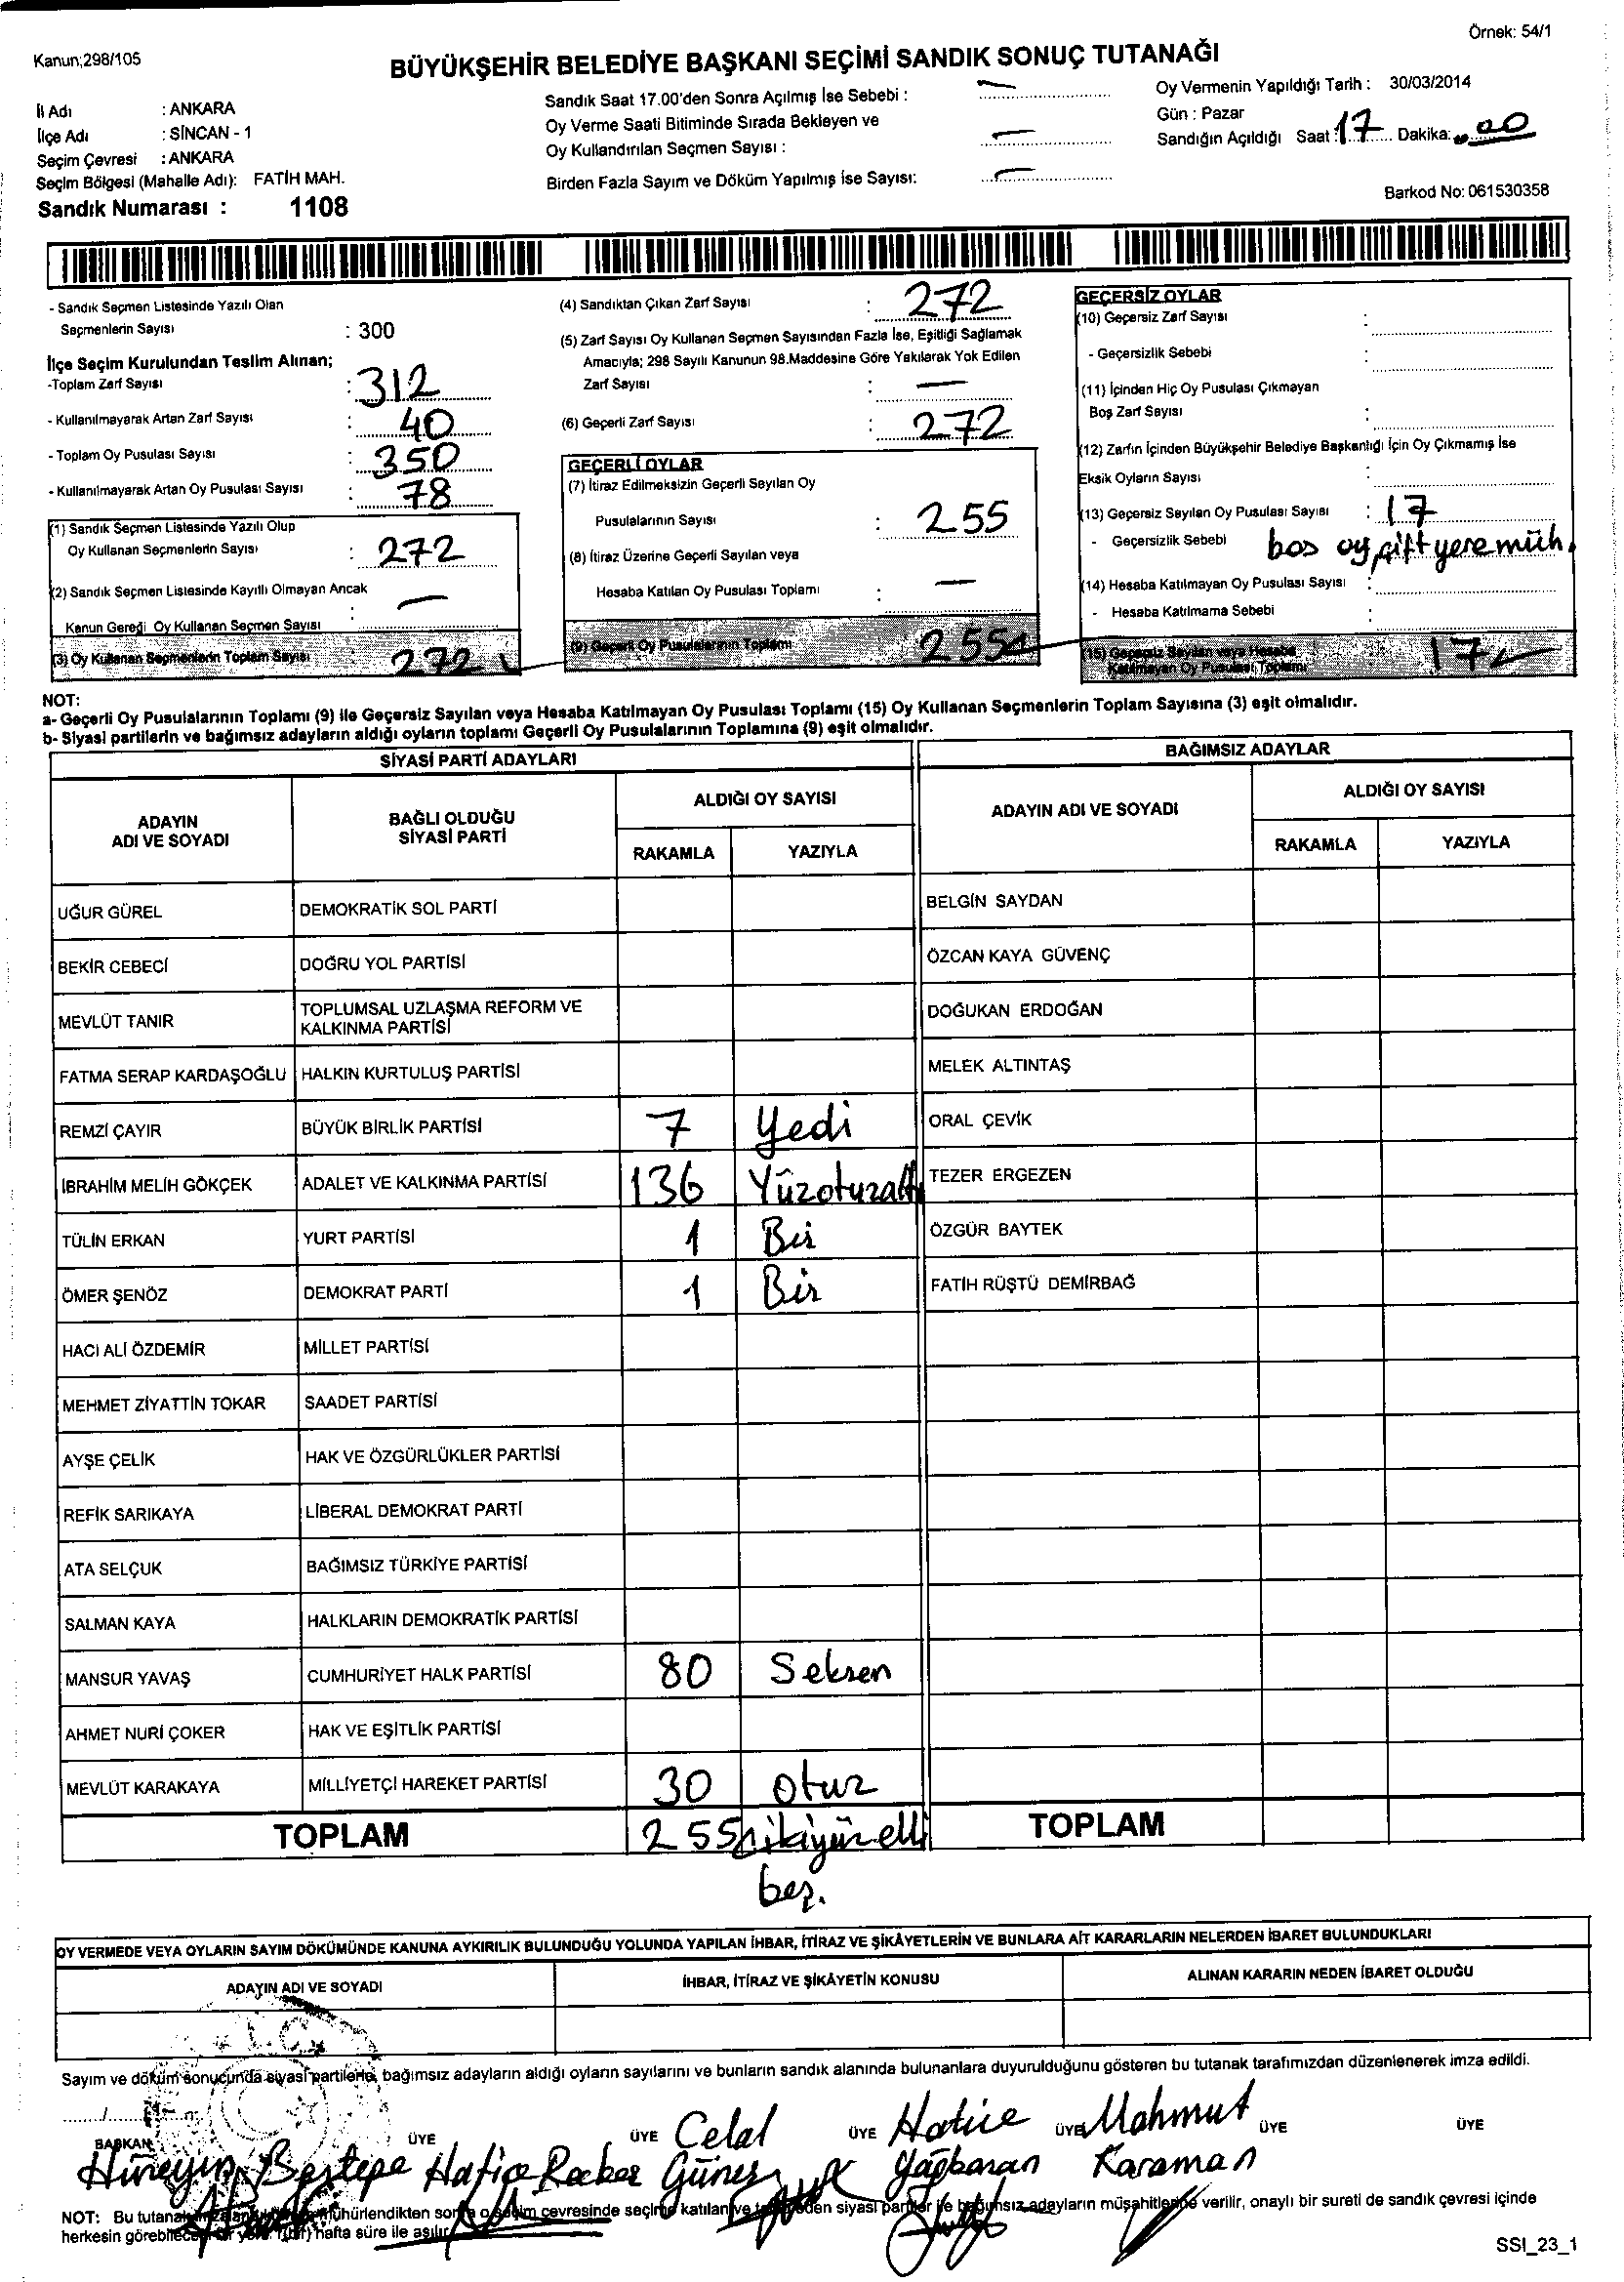 Örnek: 54/1
Kanun;298/105
BÜYÜKŞEHİR BELEDİYE BAŞKANI SEÇİMİ SANDIK SONUÇ TUTANAĞI
İl Adı : ANKARA
İlçe Adı : SİNCAN - 1
Seçim Çevresi : ANKARA
Seçim Bölgesi (Mahalle Adı): FATİH MAH.
Sandık Numarası : 1108
Sandık Saat 17.00'den Sonra Açılmış İse Sebebi : —
Oy Verme Saati Bitiminde Sırada Bekleyen ve
Oy Kullandırılan Seçmen Sayısı : —
Birden Fazla Sayım ve Döküm Yapılmış ise Sayısı: —
Oy Vermenin Yapıldığı Tarih : 30/03/2014
Gün : Pazar
Sandığın Açıldığı Saat : 17 Dakika: 00
Barkod No: 061530358
- Sandık Seçmen Listesinde Yazılı Olan
Seçmenlerin Sayısı : 300
İlçe Seçim Kurulundan Teslim Alınan;
-Toplam Zarf Sayısı : 312
- Kullanılmayarak Artan Zarf Sayısı : 40
- Toplam Oy Pusulası Sayısı : 350
- Kullanılmayarak Artan Oy Pusulası Sayısı : 78
(1) Sandık Seçmen Listesinde Yazılı Olup
Oy Kullanan Seçmenlerin Sayısı : 272
(2) Sandık Seçmen Listesinde Kayıtlı Olmayan Ancak
Kanun Gereği Oy Kullanan Seçmen Sayısı : —
(3) Oy Kullanan Seçmenlerin Toplam Sayısı : 272
(4) Sandıktan Çıkan Zarf Sayısı : 272
(5) Zarf Sayısı Oy Kullanan Seçmen Sayısından Fazla İse, Eşitliği Sağlamak
Amacıyla; 298 Sayılı Kanunun 98.Maddesine Göre Yakılarak Yok Edilen
Zarf Sayısı : —
(6) Geçerli Zarf Sayısı : 272
GEÇERLİ OYLAR
(7) İtiraz Edilmeksizin Geçerli Sayılan Oy
Pusulalarının Sayısı : 255
(8) İtiraz Üzerine Geçerli Sayılan veya
Hesaba Katılan Oy Pusulası Toplamı : —
(9) Geçerli Oy Pusulalarının Toplamı 255
GEÇERSİZ OYLAR
(10) Geçersiz Zarf Sayısı :
- Geçersizlik Sebebi :
(11) İçinden Hiç Oy Pusulası Çıkmayan
Boş Zarf Sayısı :
(12) Zarfın İçinden Büyükşehir Belediye Başkanlığı İçin Oy Çıkmamış İse
Eksik Oyların Sayısı :
(13) Geçersiz Sayılan Oy Pusulası Sayısı : 17
- Geçersizlik Sebebi bos oy, çift yere müh.
(14) Hesaba Katılmayan Oy Pusulası Sayısı :
- Hesaba Katılmama Sebebi :
(15) Geçersiz Sayılan veya Hesaba
Katılmayan Oy Pusulası Toplamı 17
NOT:
a- Geçerli Oy Pusulalarının Toplamı (9) ile Geçersiz Sayılan veya Hesaba Katılmayan Oy Pusulası Toplamı (15) Oy Kullanan Seçmenlerin Toplam Sayısına (3) eşit olmalıdır.
b- Siyasi partilerin ve bağımsız adayların aldığı oyların toplamı Geçerli Oy Pusulalarının Toplamına (9) eşit olmalıdır.
SİYASİ PARTİ ADAYLARI BAĞIMSIZ ADAYLAR
ADAYIN
ADI VE SOYADI
BAĞLI OLDUĞU
SİYASİ PARTİ
ALDIĞI OY SAYISI
RAKAMLA YAZIYLA
ADAYIN ADI VE SOYADI
ALDIĞI OY SAYISI
RAKAMLA YAZIYLA
UĞUR GÜREL DEMOKRATİK SOL PARTİ BELGİN SAYDAN
BEKİR CEBECİ DOĞRU YOL PARTİSİ ÖZCAN KAYA GÜVENÇ
MEVLÜT TANIR TOPLUMSAL UZLAŞMA REFORM VE
KALKINMA PARTİSİ DOĞUKAN ERDOĞAN
FATMA SERAP KARDAŞOĞLU HALKIN KURTULUŞ PARTİSİ MELEK ALTINTAŞ
REMZİ ÇAYIR BÜYÜK BİRLİK PARTİSİ 7 Yedi ORAL ÇEVİK
İBRAHİM MELİH GÖKÇEK ADALET VE KALKINMA PARTİSİ 136 Yüzotuzaltı TEZER ERGEZEN
TÜLİN ERKAN YURT PARTİSİ 1 Bir ÖZGÜR BAYTEK
ÖMER ŞENÖZ DEMOKRAT PARTİ 1 Bir FATİH RÜŞTÜ DEMİRBAĞ
HACI ALİ ÖZDEMİR MİLLET PARTİSİ
MEHMET ZİYATTİN TOKAR SAADET PARTİSİ
AYŞE ÇELİK HAK VE ÖZGÜRLÜKLER PARTİSİ
REFİK SARIKAYA LİBERAL DEMOKRAT PARTİ
ATA SELÇUK BAĞIMSIZ TÜRKİYE PARTİSİ
SALMAN KAYA HALKLARIN DEMOKRATİK PARTİSİ
MANSUR YAVAŞ CUMHURİYET HALK PARTİSİ 80 Seksen
AHMET NURİ ÇOKER HAK VE EŞİTLİK PARTİSİ
MEVLÜT KARAKAYA MİLLİYETÇİ HAREKET PARTİSİ 30 otuz
TOPLAM 255 ikiyüzelli TOPLAM
beş.
OY VERMEDE VEYA OYLARIN SAYIM DÖKÜMÜNDE KANUNA AYKIRILIK BULUNDUĞU YOLUNDA YAPILAN İHBAR, İTİRAZ VE ŞİKÂYETLERİN VE BUNLARA AİT KARARLARIN NELERDEN İBARET BULUNDUKLARI
ADAYIN ADI VE SOYADI İHBAR, İTİRAZ VE ŞİKÂYETİN KONUSU ALINAN KARARIN NEDEN İBARET OLDUĞU
Sayım ve döküm sonucunda siyasi partilerle, bağımsız adayların aldığı oyların sayılarını ve bunların sandık alanında bulunanlara duyurulduğunu gösteren bu tutanak tarafımızdan düzenlenerek imza edildi.
BAŞKAN ÜYE ÜYE Celal ÜYE Hatice ÜYE Mahmut ÜYE ÜYE
Hüseyin Beştepe Hatice Güneş Yağbasan Karaman
NOT: Bu tutanak mühürlendikten sonra o seçim çevresinde seçime katılan ve siyasi partiler ile bağımsız adayların müşahitlerine verilir, onaylı bir sureti de sandık çevresi içinde
herkesin görebileceği bir yere (bir) hafta süre ile asılır.
SSI_23_1